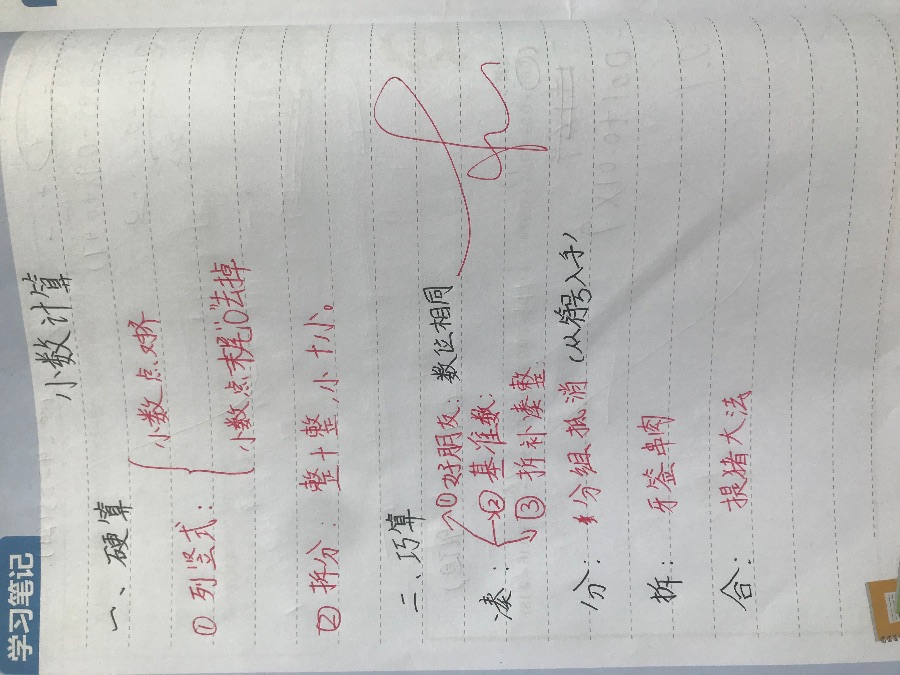 学习笔记
小数计算
一、硬算
①列竖式：{小数点对齐
小数点末尾"0"去掉
②拆分：整+整，小+小。
二、巧算
凑：①好朋友：数位相同
②基准数：
③拆补凑整
分：分组抵消（从符号入手）
拆：牙签串肉
合：提猪大法